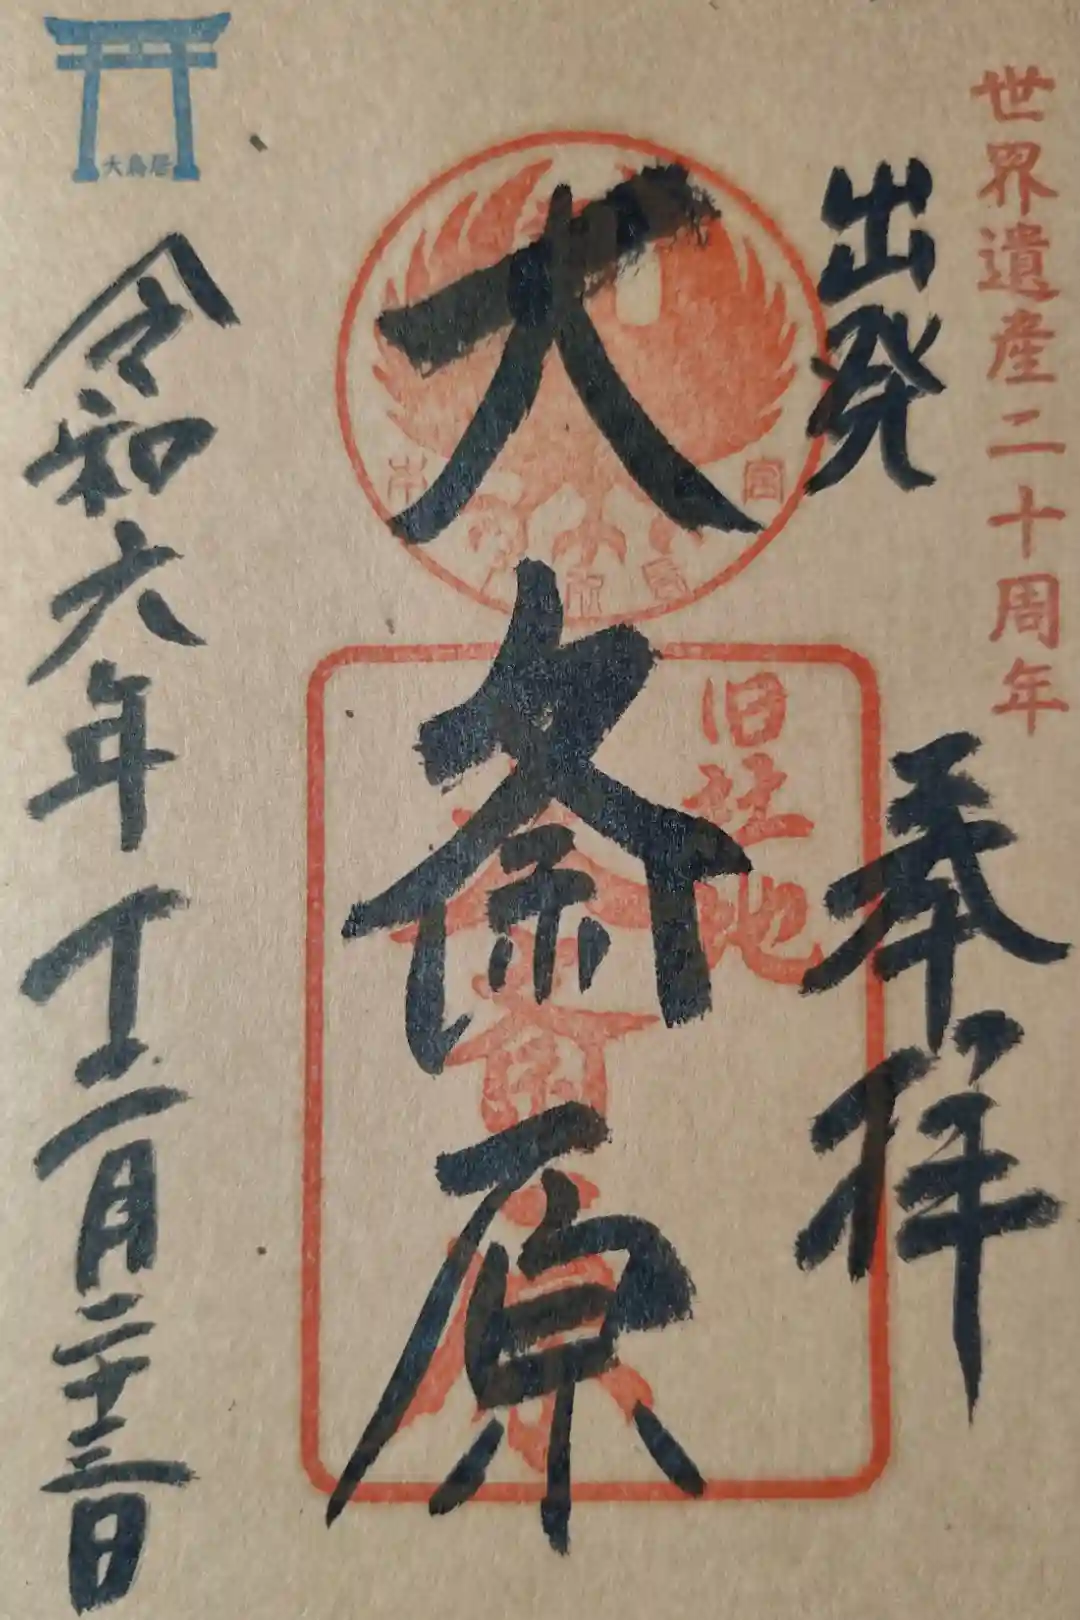 世界遺産二十周年
出発
奉拝
旧社地
大斎原
大斎原
大鳥居
令和六年十二月二十三日